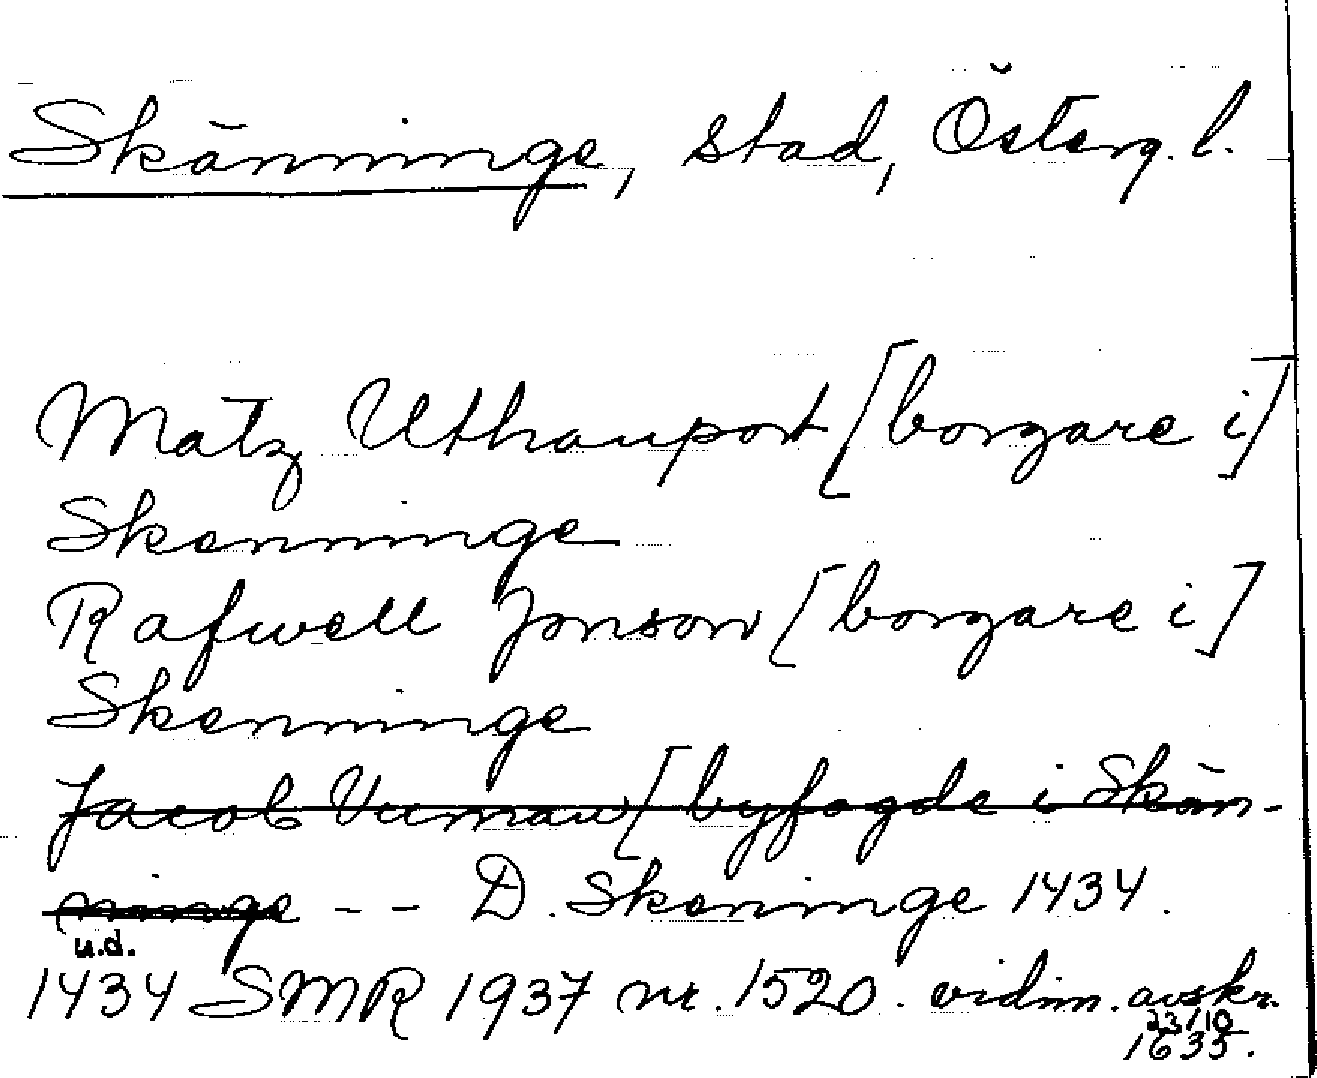 Skänninge, stad, Österg. l.
Matz Uthauport [borgare i]
Skenninge
Rafwell Jonson [borgare i]
Skenninge
Jacob Vuman [byfogde i Skän-
ninge -- D. Skeninge 1434.
u.d.
1434 SMR 1937 nr. 1520. vidim. avskr.
23/10
1635.